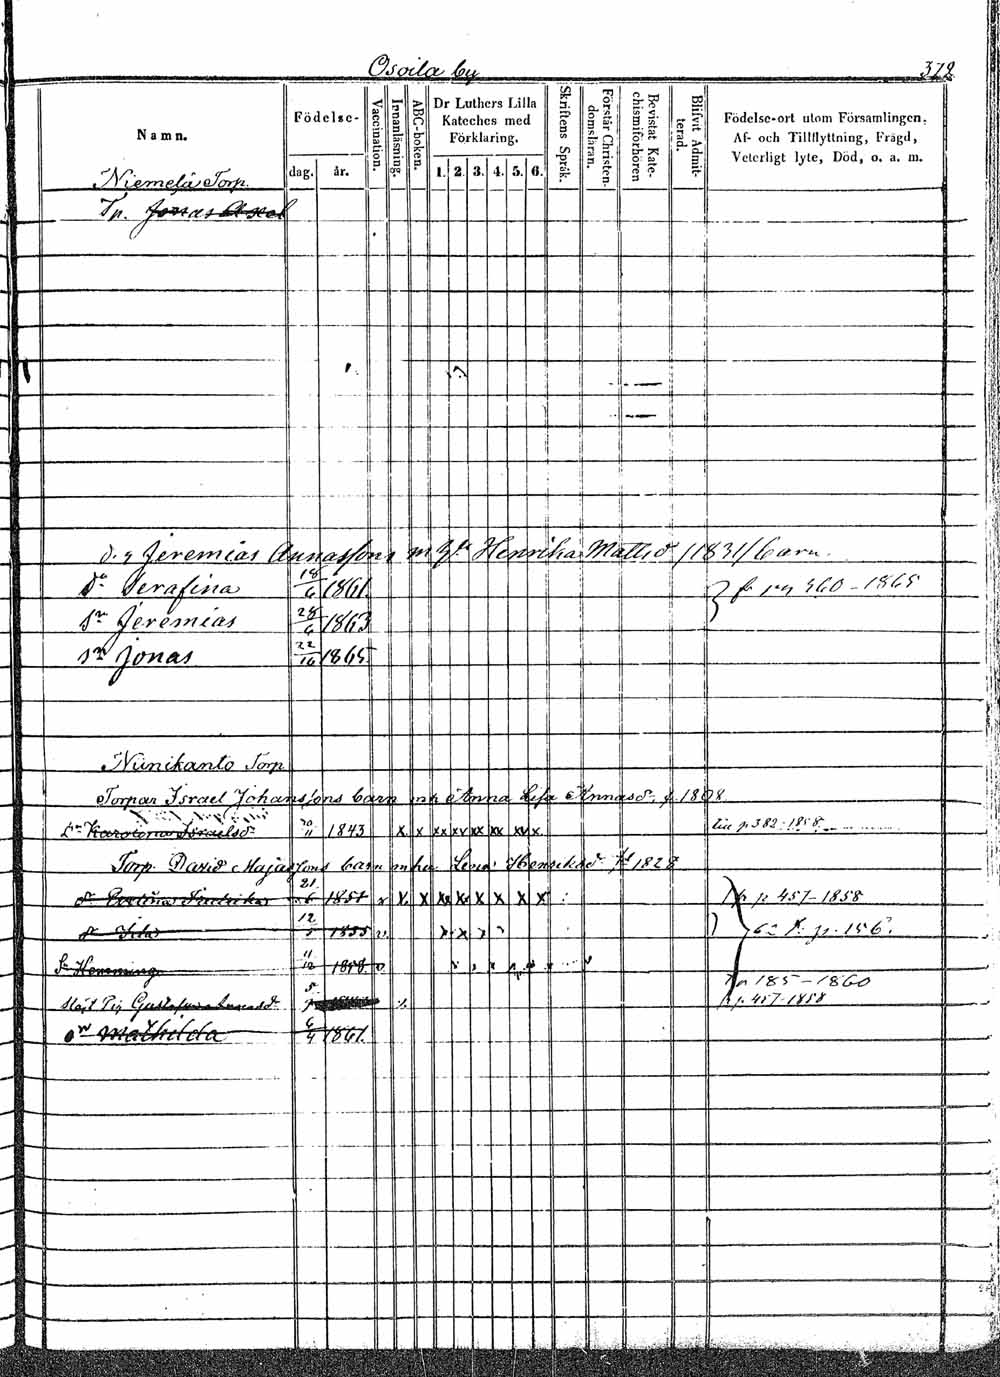 Osoila by 372
Namn. Födelse- Vaccination. Innanläsning. ABC-boken. Dr Luthers Lilla Kateches med Förklaring. Skriftens Språk. Förstår Christendomsläran. Bevistat Katechismiförhören Blifvit Admitterad. Födelse-ort utom Församlingen, Af- och Tillflyttning, Frägd, Veterligt lyte, Död, o. a. m.
dag. år. 1. 2. 3. 4. 5. 6.
Niemelä Torp.
Tp. Jonas Axel
Jeremias Annassons m Henrika Matsd /1831/ barn.
Dr Serafina 18/6 1861. 360-1865
Sn Jeremias 28/6 1863
Sn Jonas 22/10 1865
Niinikanto Torp
Torpar Israel Johanssons barn Anna Lisa Annasd. f. 1808
Dr Karolina Israelsd 20/11 1843 x x xx xx xx x xx x p 382-1858
Torp. David Majassons barn Lena Henriksd fd 1828
Fredrika 21/6 1851 x x x x x x x x p 457-1858
12 1855 v. x x 62 p. 156
Sn Hemming 11/12 1858
185-1860
Pig Gustafva 5 p. 457-1858
Mathilda 6/4 1861.